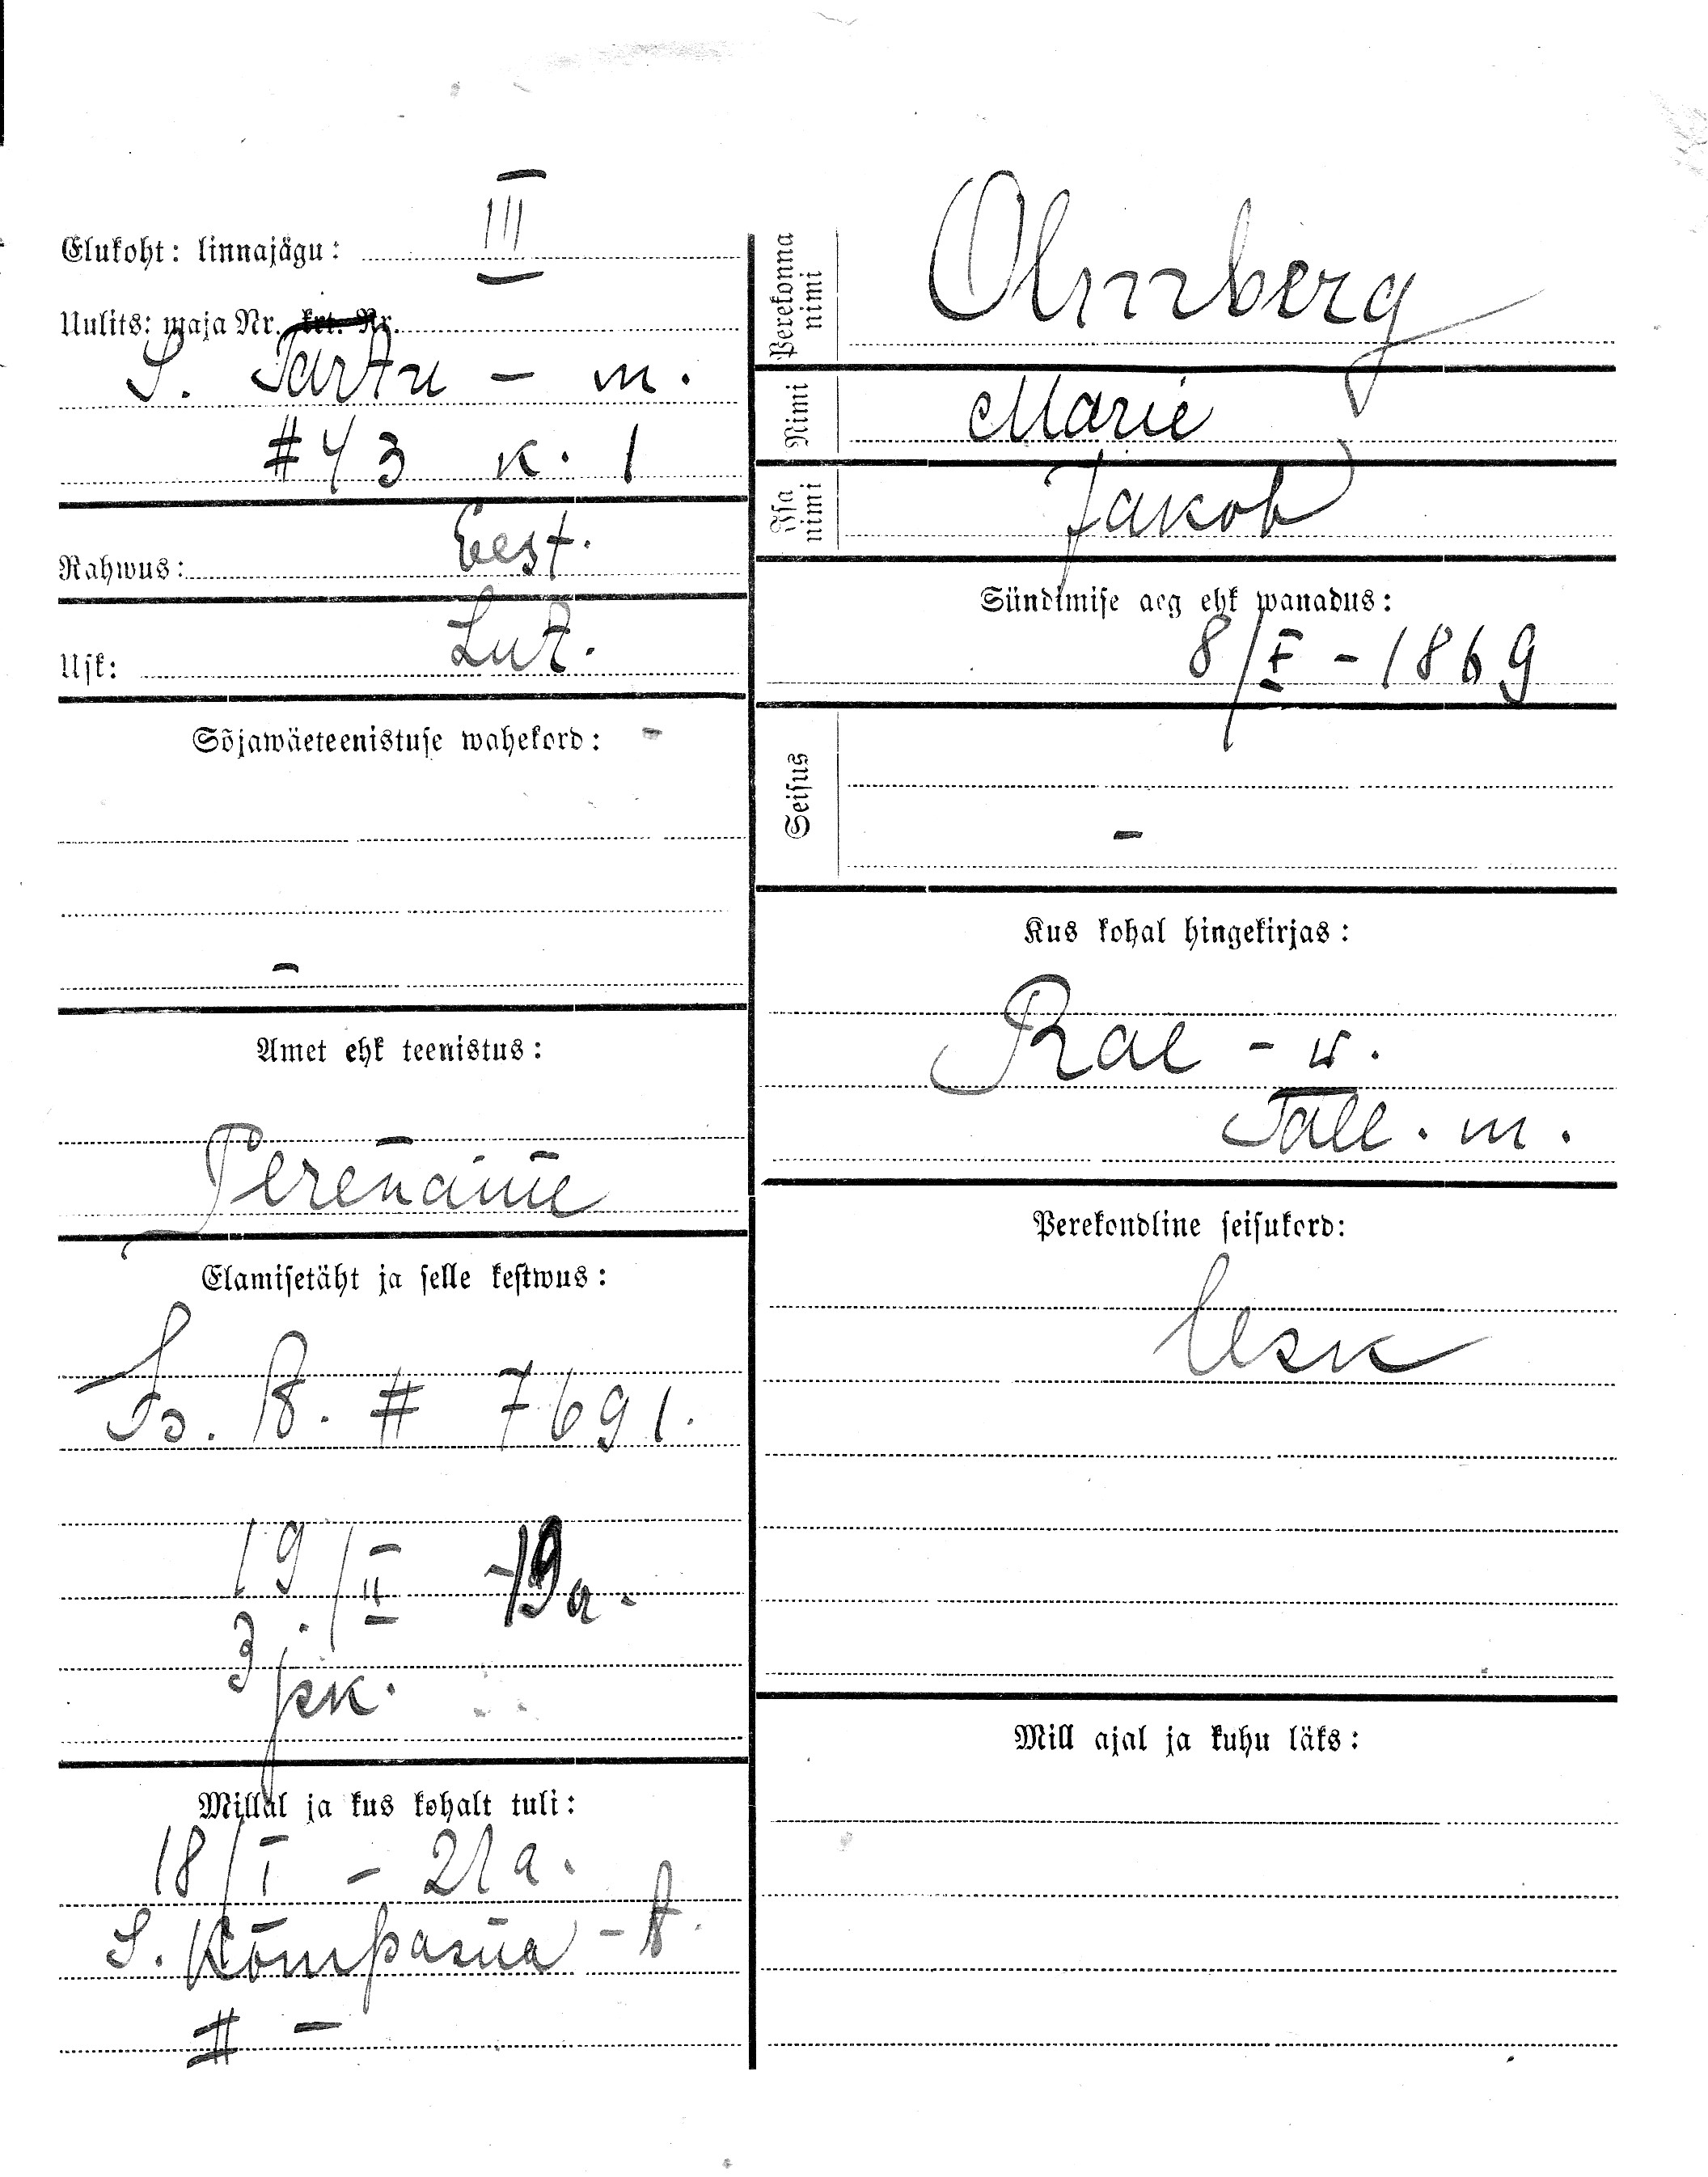 Elukoht: linnajägu: III
Uulits: maja Nr. krt. Nr.
S. Tartu - m.
# 43 k. 1
Rahwus: Eest.
Usk: Lut.
Sõjawäeteenistuse wahekord: -
-
Amet ehk teenistus:
Perenaine
Elamisetäht ja selle kestwus:
# 7691.
19/II - 19 a.
3
Millal ja kus kohalt tuli:
18/I - 21 a.
S. Kompasna - t.
# -
Perekonna nimi
Nimi Marie
Isa nimi Jakob
Sündimise aeg ehk wanadus:
8/I - 1869
Seisus
-
Kus kohal hingekirjas:
Rae - w.
Tall. m.
Perekondline seisukord:
lesk
Mill ajal ja kuhu läks: